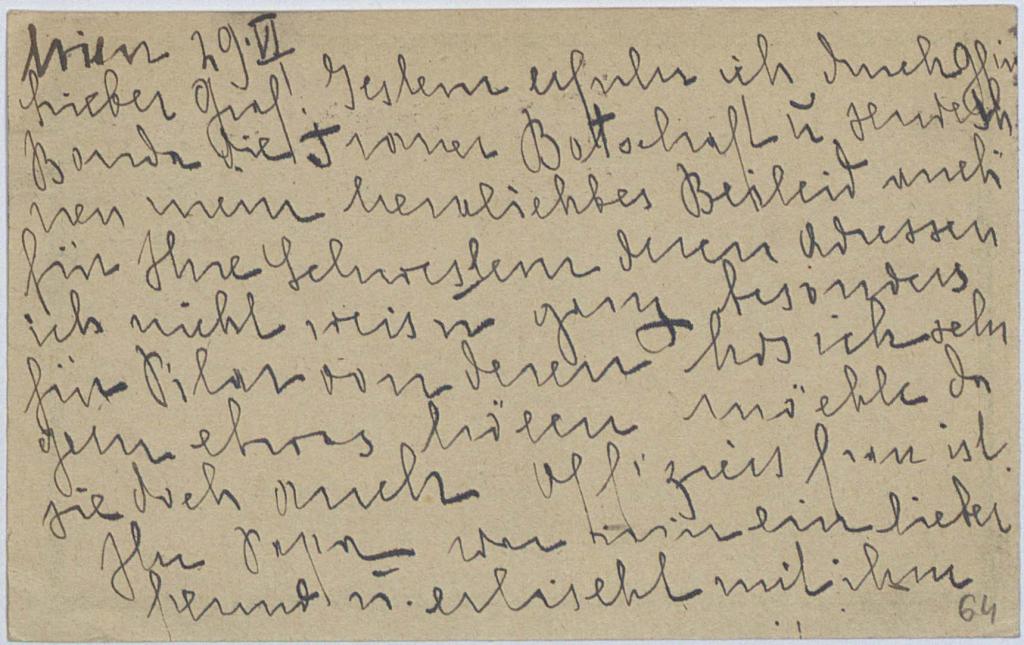 Wien 29.VI
Lieber Graf! Gestern erfuhr ich durch Gfin
Banda die Trauer Botschaft u sende Ih
nen mein herzlichstes Beileid auch
für Ihre Schwestern deren Adressen
ich nicht weis u ganz besonders
für Pilar von deren Los ich sehr
gern etwas hören möchte da
sie doch auch Offiziersfrau ist.
Ihr Papa war mir ein lieber
Freund u. erlischt mit ihm
64